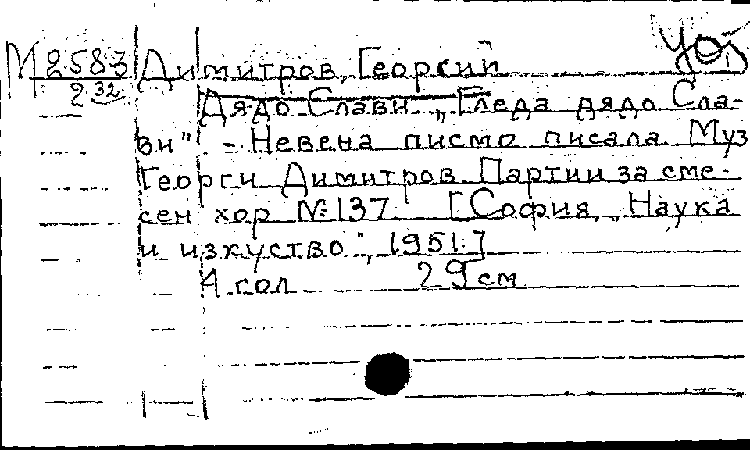 М 2583 Димитров, Георгий
2 32
Дядо Слави „Гледа дядо Сла-
ви" - Невена писмо писала. Муз
Георги Димитров. Партии за сме-
сен хор №137. [София, „Наука
и изкуство", 1951.]
4 гол 29 см